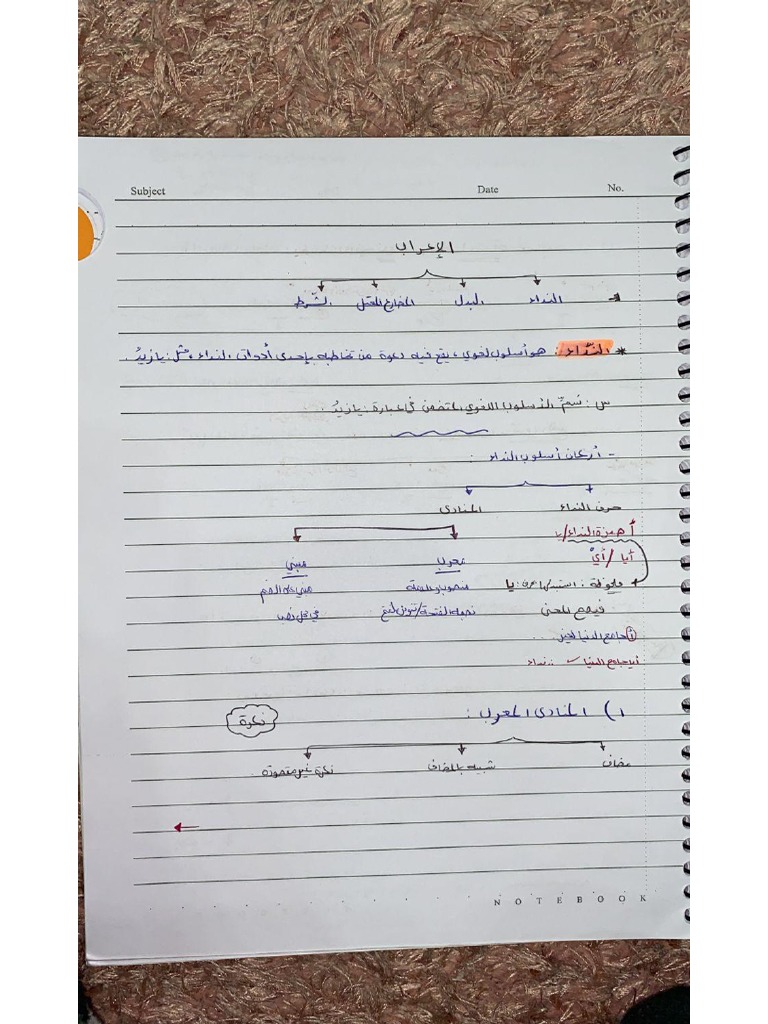 Subject Date No.
الإعراب
النداء البدل المضارع المعتل الشرط
* النّداء: هو أسلوب لغوي، يقع فيه دعوة من تخاطبه بإحدى أدوات النداء، مثل: يا زيدُ
س: سَمِّ الأسلوب اللغوي المتضمن في عبارة: يا زيدُ.
- أركان أسلوب النداء:
حرف النداء المنادى
أ همزة النداء/يا
أيا / أيْ معرب مبني
ملحوظة: استبدلها بحرف: يا منصوب وعلامة مبني على الضم
فيصح المعنى نصبه الفتحة/تنوين الفتح في محل نصب
أ جامع الدنيا لغير ..
أيا جامع الدنيا نداء
١) المنادى المعرب: نكرة
مضاف شبيه بالمضاف نكرة غير مقصودة
NOTEBOOK